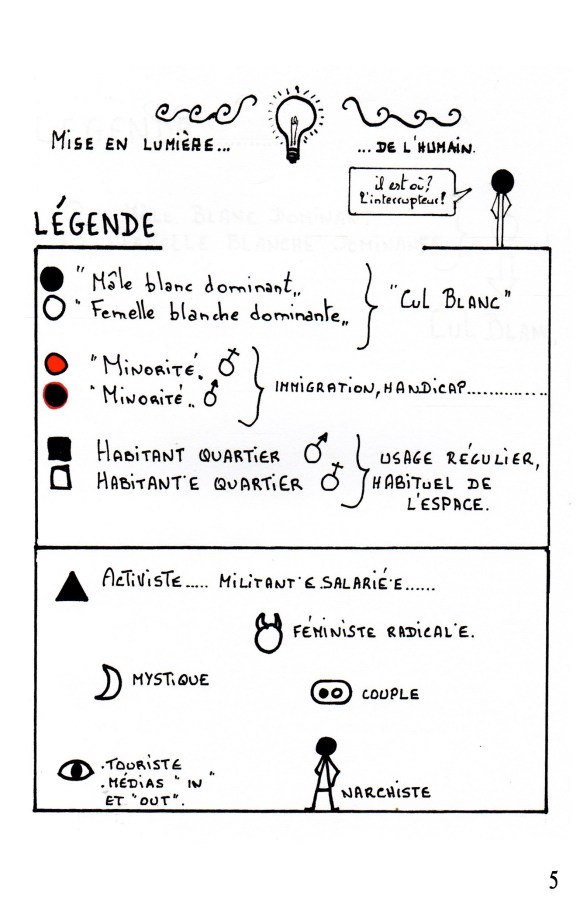 MISE EN LUMIÈRE...
... DE L'HUMAIN.
il est où?
L'interrupteur!
LÉGENDE
" Mâle blanc dominant„
" Femelle blanche dominante„
"CUL BLANC"
"MINORITÉ„ ♀
"MINORITÉ„ ♂
IMMIGRATION, HANDICAP..............
HABITANT QUARTIER ♂
HABITANT·E QUARTIER ♀
USAGE RÉGULIER,
HABITUEL DE
L'ESPACE.
ACTIVISTE..... MILITANT·E.SALARIÉ·E......
FÉMINISTE RADICAL·E.
MYSTIQUE
COUPLE
.TOURISTE
.MÉDIAS "IN"
ET "OUT".
NARCHISTE
5